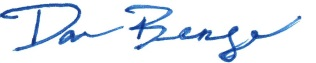 Dan Benge